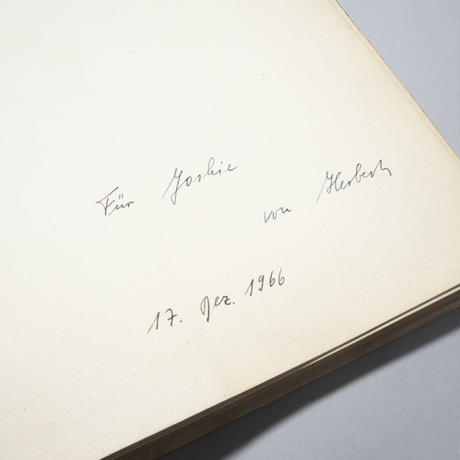 Für Joshie
von Herbert
17. Dez. 1966